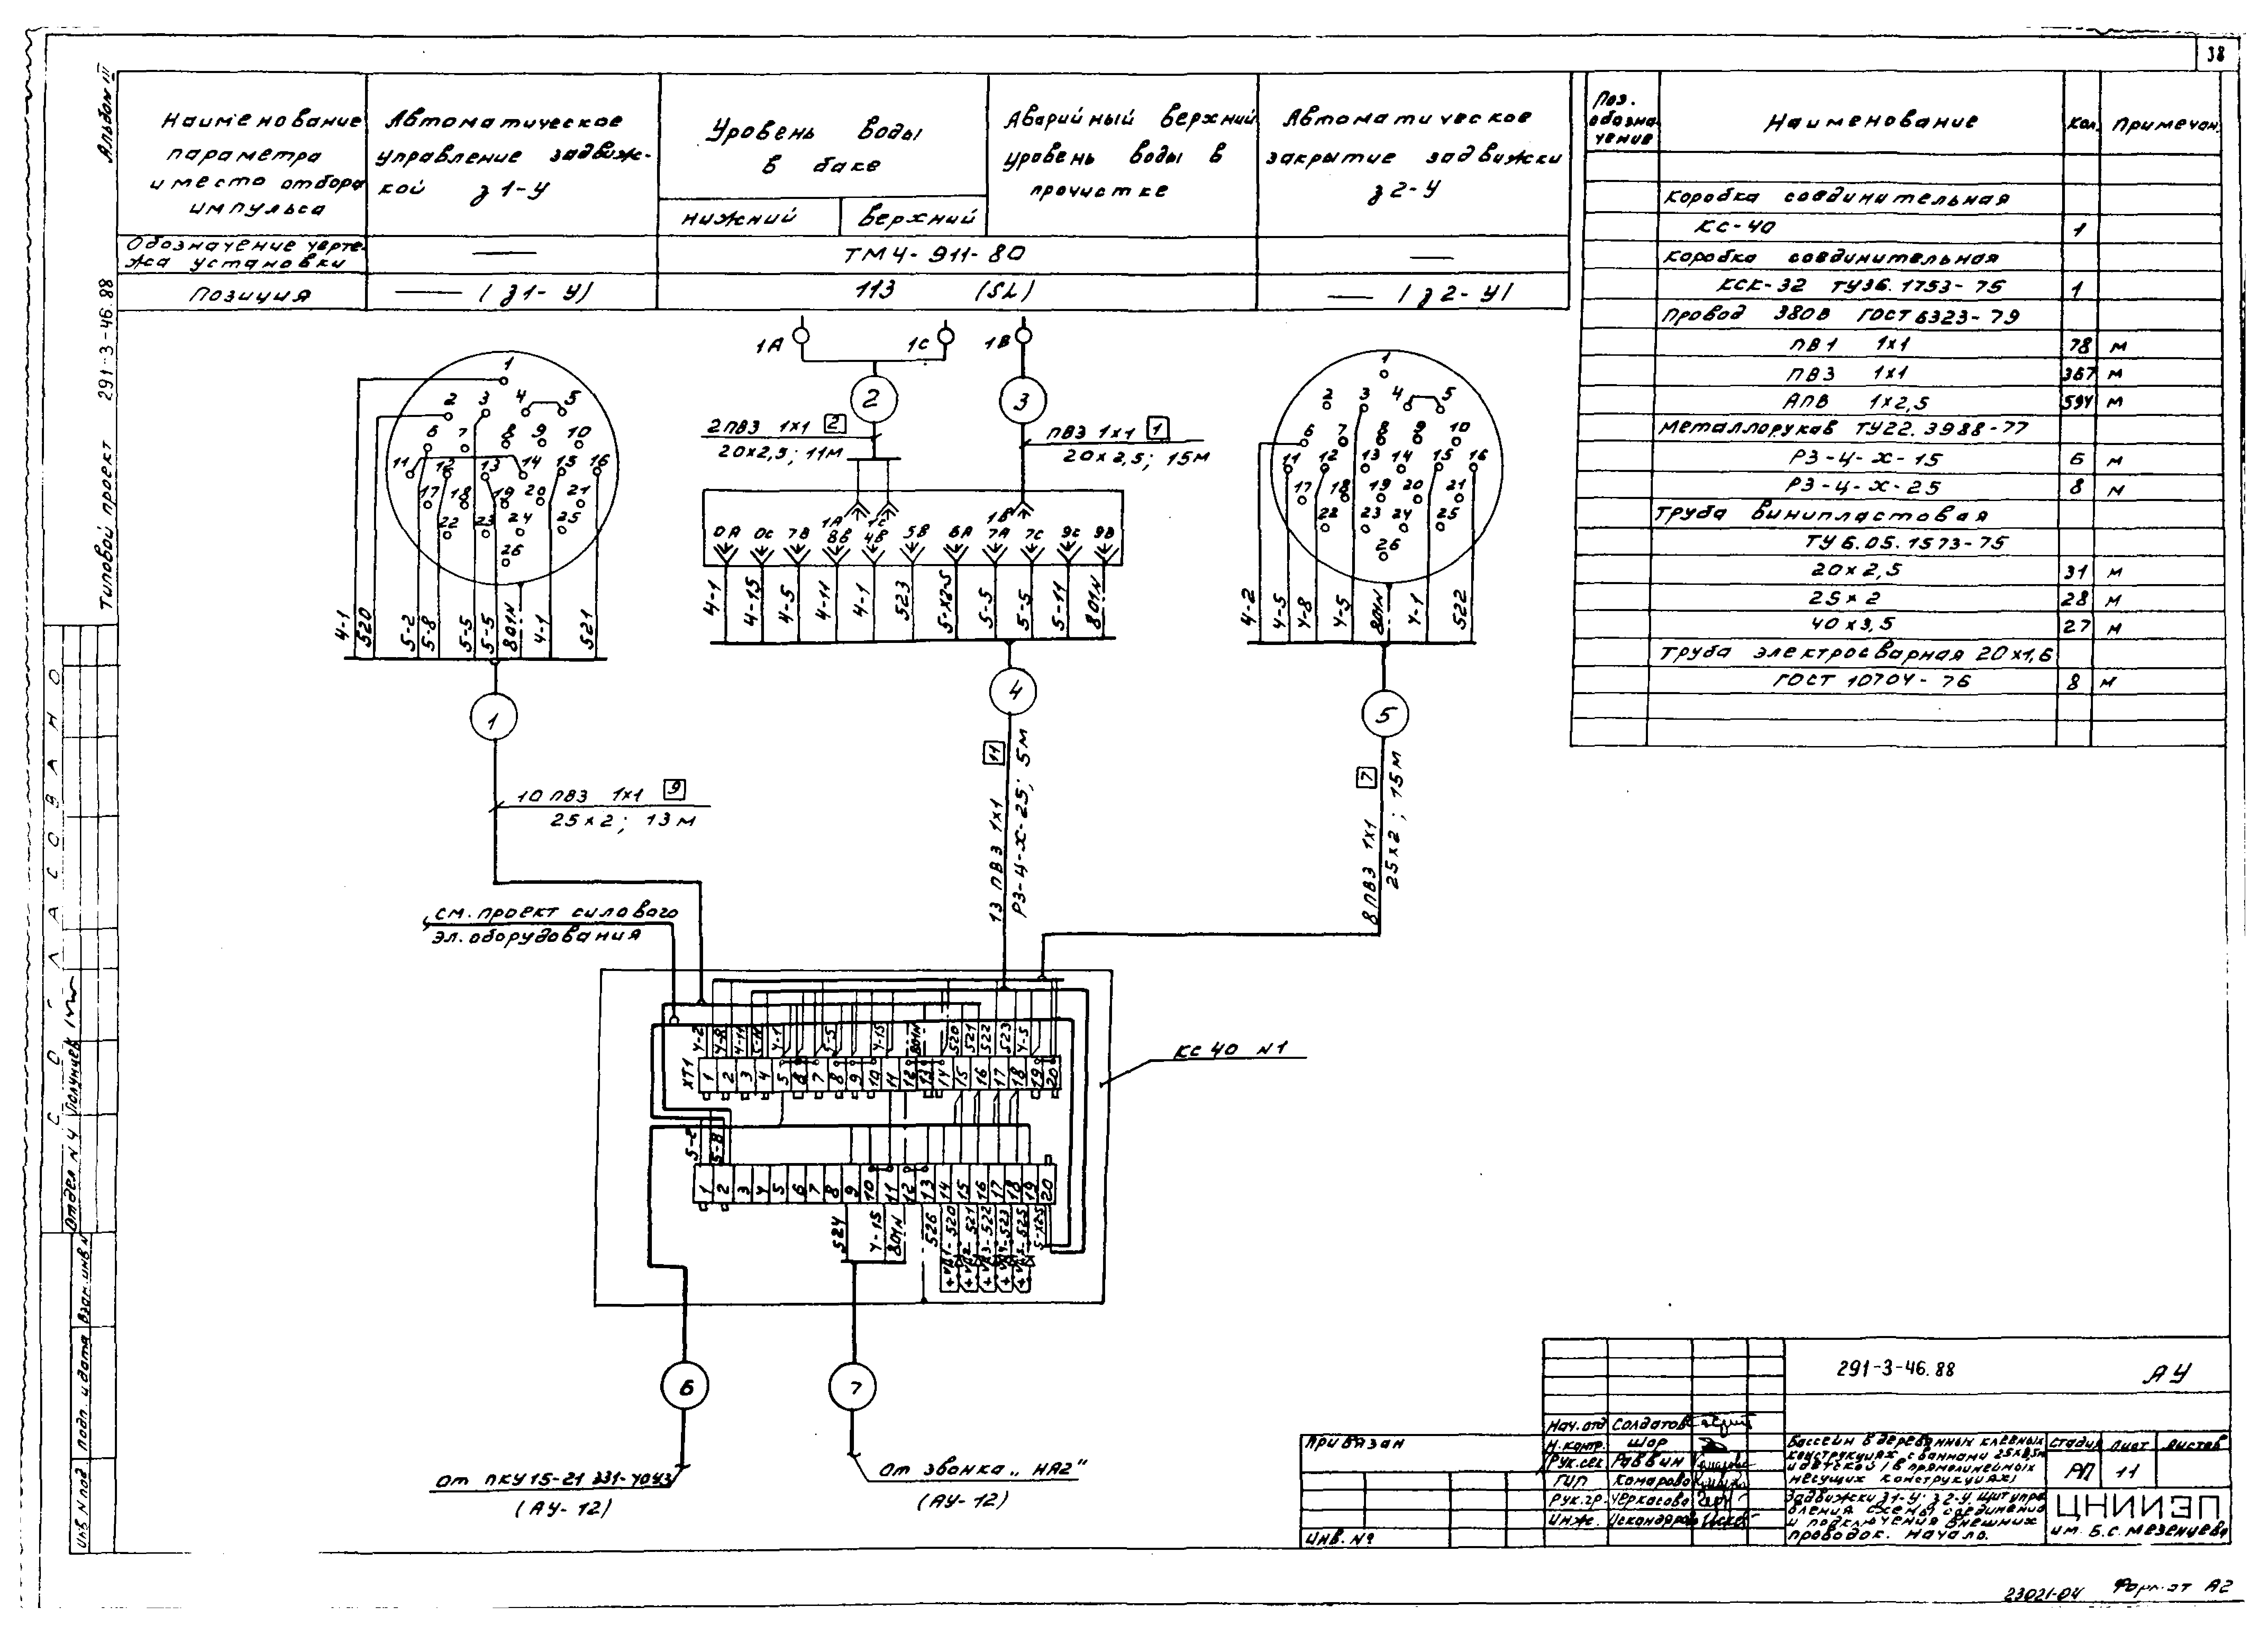 38
Альбом III
Типовой проект 291-3-46.88
Наименование параметра и место отбора импульса
Автоматическое управление задвижкой з1-У
Уровень воды в баке
нижний
верхний
Аварийный верхний уровень воды в прочистке
Автоматическое закрытие задвижки з2-У
Обозначение чертежа установки
ТМ4-911-80
Позиция
(з1-У)
113 (SL)
(з2-У)
Поз. обозначение
Наименование
Кол.
Примечан.
Коробка соединительная
КС-40 1
Коробка соединительная
КСК-32 ТУ36.1753-75 1
Провод 380В ГОСТ 6323-79
ПВ1 1х1 78 м
ПВ3 1х1 367 м
АПВ 1х2,5 594 м
Металлорукав ТУ22.3988-77
РЗ-Ц-Х-15 6 м
РЗ-Ц-Х-25 8 м
Труба винипластовая
ТУ6.05.1573-75
20х2,5 31 м
25х2 28 м
40х3,5 27 м
Труба электросварная 20х1,6
ГОСТ 10704-76 8 м
1А 1С 1В
2 3
2ПВ3 1х1 2
20х2,5; 11м
ПВ3 1х1 1
20х2,5; 15м
1
2 3 4 5
6 7 8 9 10
11 12 13 14 15 16
17 18 19 20 21
22 23 24 25
26
1А 1С 1В
0А 0С 7В 8В 4В 5В 6А 7А 7С 9С 9В
1
2 3 4 5
6 7 8 9 10
11 12 13 14 15 16
17 18 19 20 21
22 23 24 25
26
4-1 520 5-2 5-8 5-5 5-5 801N 4-1 521
4-1 4-15 4-5 4-11 4-1 523 5х2-5 5-5 5-5 5-11 801N
4-2 4-5 4-8 4-5 801N 4-1 522
1 4 5
10 ПВ3 1х1 9
25х2; 13м
13 ПВ3 1х1 11
РЗ-Ц-Х-25; 5м
8ПВ3 1х1 7
25х2; 15м
см. проект силового
эл.оборудования
КС 40 N1
ХТ1
4-2 4-8 4-11 5-11 4-1 5-5 4-15 801N 520 521 522 523 4-5
1 2 3 4 5 6 7 8 9 10 11 12 13 14 15 16 17 18 19 20
5-2 5-8
1 2 3 4 5 6 7 8 9 10 11 12 13 14 15 16 17 18 19 20
524 4-15 801N 526 520 521 522 523 525 5-х25
6 7
От ПКУ15-21 331-40У3
(АУ-12)
От звонка „НА2"
(АУ-12)
СОГЛАСОВАНО
Отдел N4
Инв.N под.
Подп. и дата
Взам.инв.N
Привязан
Инв.№
291-3-46.88
АУ
Нач.отд Солдатов
Н.контр. Шор
Рук.сек Раввин
ГИП Комарова
Рук.гр. Черкасова
Инж.
Бассейн в деревянных клееных
конструкциях с ваннами 25х8,5м
и детской (в прямолинейных
несущих конструкциях)
Стадия Лист Листов
РП 11
Задвижки з1-У, з2-У. Щит управления. Схемы соединений
и подключения внешних
проводок. Начало.
ЦНИИЭП
им. Б.С. Мезенцева
23021-04
Формат А2